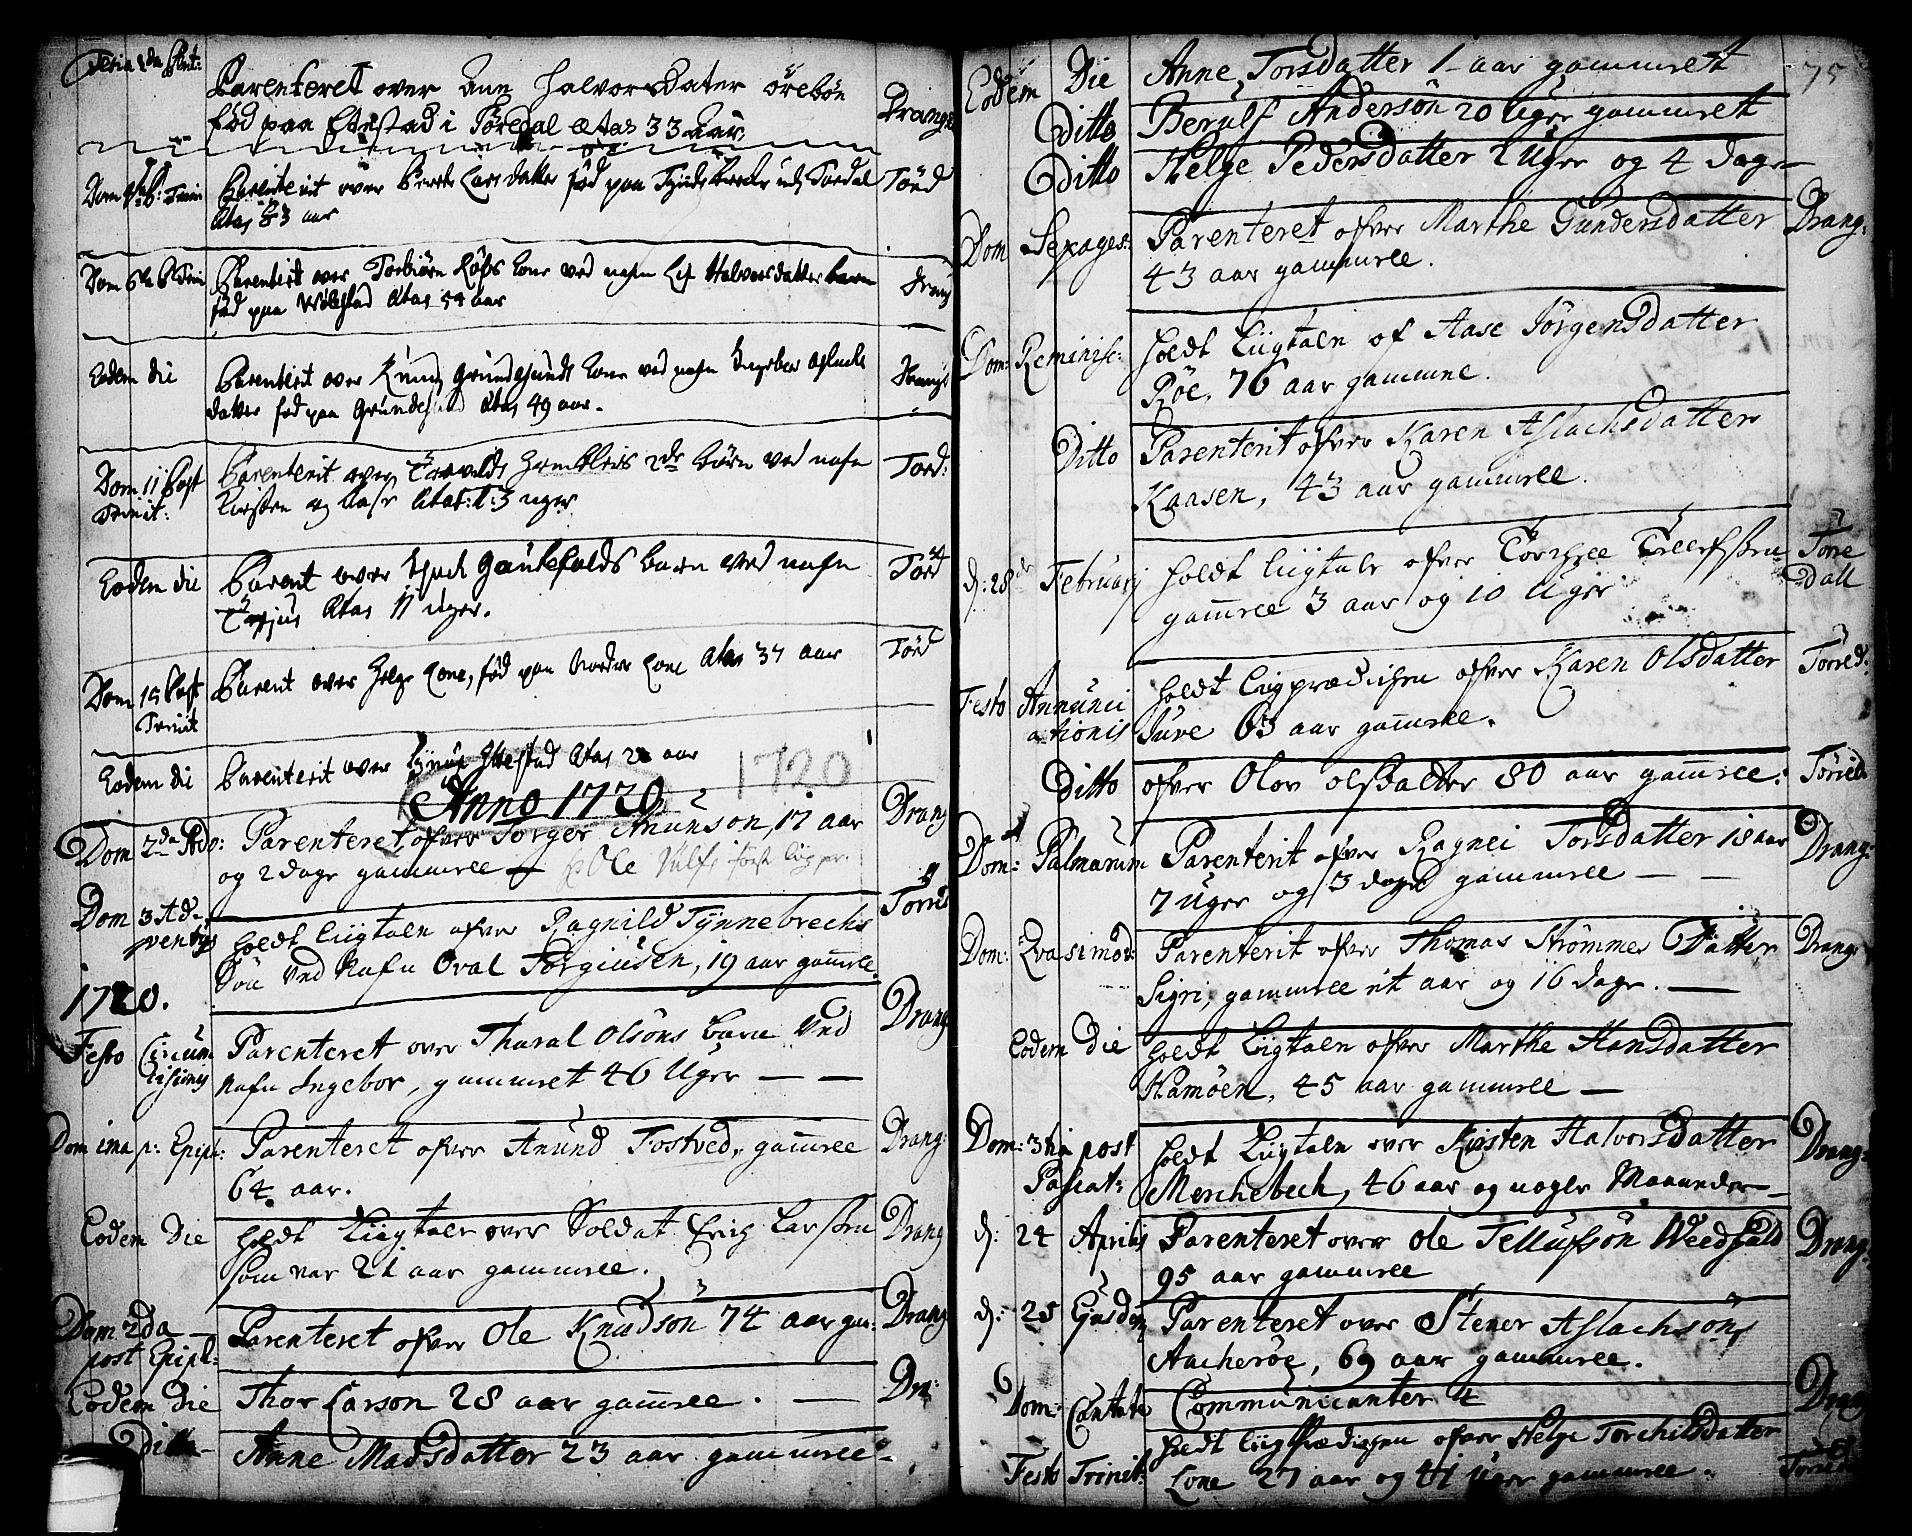 Feria 2da Pent:
Parenteret over Ane Halvorsdater örebön
fød paa Etestad i Töredal ætas 33 aar.
Drang
Dom
Trini
Parenterit over Larsdatter fød paa udj Tordal
Ætas 83 aar
Törd
Dom 6ta P. Trini
Parenterit over Torbiörn Röès Kone ved nafn Lif Halversdatter
fød paa Ætas 54 aar
Drang
Eodem die
Parenterit over Knud Kone ved nafn Ingebor Aslachs
datter fød paa Ætas 49 aar.
Drang
Dom 11 Post
Trinit:
Parenterit over 2de börn ved nafn
Kirsten og Aase Ætat: 3 uger
Tord:
Eodem die
Parent over Gautefalds barn ved nafn
Tarjus Ætas 11 uger.
Törd
Dom 15 Post
Trinit
Parent over Helge Lone, fød paa Nordre Lone Ætas 37 aar
Törd
Eodem die
Parenterit over Ettestad Ætas aar
1720
Anno 1720
Dom 2da Adv:
Parenteret ofver Törger Anunson, 17 aar
og 2 dage gammel Ole
Drang
Dom 3 Ad-
ventus
Holdt Liigtalen ofver Ragnild Tÿnnebrechs
Sön ved Nafn Oval Torgiusen, 19 aar gamle.
Torred
1720.
Festo Circum
cisionis
Parenteret over Tharal Olsöns barn ved
Nafn Ingebor, gammel 46 Uger — —
Drang
Dom ima p: Epiph:
Parenteret ofver Anund Tostved, gamle
64. aar.
Drang:
Eodem Die
Holdt Liigtale over Soldat Erich Larssen
som var 21 aar gammel.
Drang
Dom 2da
post Epiph:
Parenteret ofver Ole Knudsön 74 aar gam:
Drang
Eodem die
Thor Larson 28 aar gamle. —
Dra:
Ditto
Anne Madsdatter 23 aar gammel.
75
Eodem Die
Anne Torsdatter 1 aar gammelt
Ditto
Berulf Andersön 20 Uger gammelt
Ditto
Helge Pedersdatter 2 Uger og 4 Dage
Dom Sexages:
Parenteret ofver Marthe Gundersdatter
43 aar gammel.
Drang:
Dom: Reminisc:
Holdt Liigtalen of Aase Jörgensdatter
Röe, 76 aar gamme.
Ditto
Parenterit ofver Karen Aslachsdatter
Kaasen, 43 aar gammel.
d: 28 Februarj
Holdt Liigtale ofver
gamle 3 aar og 10 Uger
Törre
Dall
Festo Annunci
ationis
Holdt Liigprædichen ofver Karen Olsdatter
Jure 63 aar gamle.
Törred.
Ditto
ofver Olov Olsdatter 80 aar gamle.
Törred
Dom: Palmarum
Parenterit ofver Ragnei Torsdatter 18 aar
7 Uger og 3 dage gammel — —
Drang:
Dom: Qvasimod:
Parenterit ofver Thomas Strömmes Datter
Sigri, gammel it aar og 16 dage. —
Drang:
Eodem die
Holdt Liigtalen ofver Marthe Hansdatter
Hamöen, 45 aar gammel —
Dom: 3tia post
Pascat:
Holdt Liigtalen over Kirsten Halvorsdatter
Merchebech, 46 aar og nogle Maaneder—
Drang:
d: 24 Aprilis
Parenteret over Ole Tellufsön Weedfald
95 aar gammel
Drang:
d: 25 Ejusdem
Parenteret over Stener Aslachsöns
Aacheröe, 69 aar gammel.
Dom: Cantate
Communicanter 4
Drang
Festo Trinit:
Holdt Liigprædichen ofver Helge Torchilsdatter
Lone 27 aar og 41 Uger gammel.
Torred